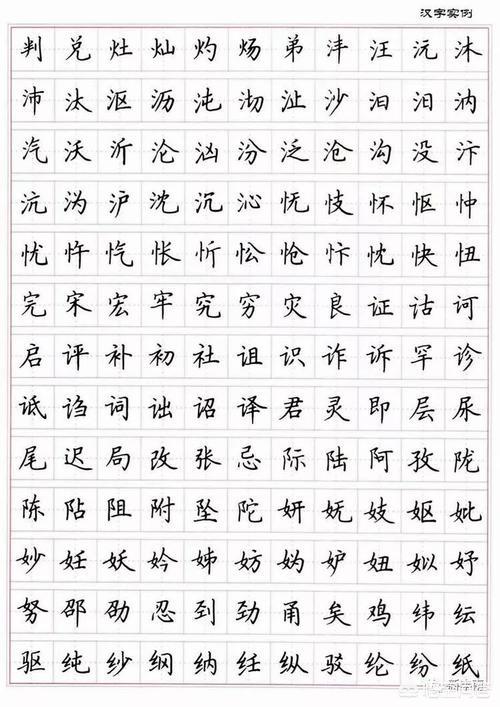 汉字实例
判兑灶灿灼炀弟沣汪沅沐
沛汰沤沥沌沏沚沙汩汨汭
汽沃沂沦汹汾泛沧沟没汴
沆沩沪沈沉沁怃忮怀怄忡
忧忤忾怅忻忪怆忭忱快忸
完宋宏牢究穷灾良证诂诃
启评补初社诅识诈诉罕诊
诋诌词诎诏译君灵即层尿
尾迟局改张忌际陆阿孜陇
陈阽阻附坠陀妍妩妓妪妣
妙妊妖妗姊妨妫妒妞姒妤
努邵劭忍到劲甬矣鸡纬纭
驱纯纱纲纳纴纵驳纶纷纸